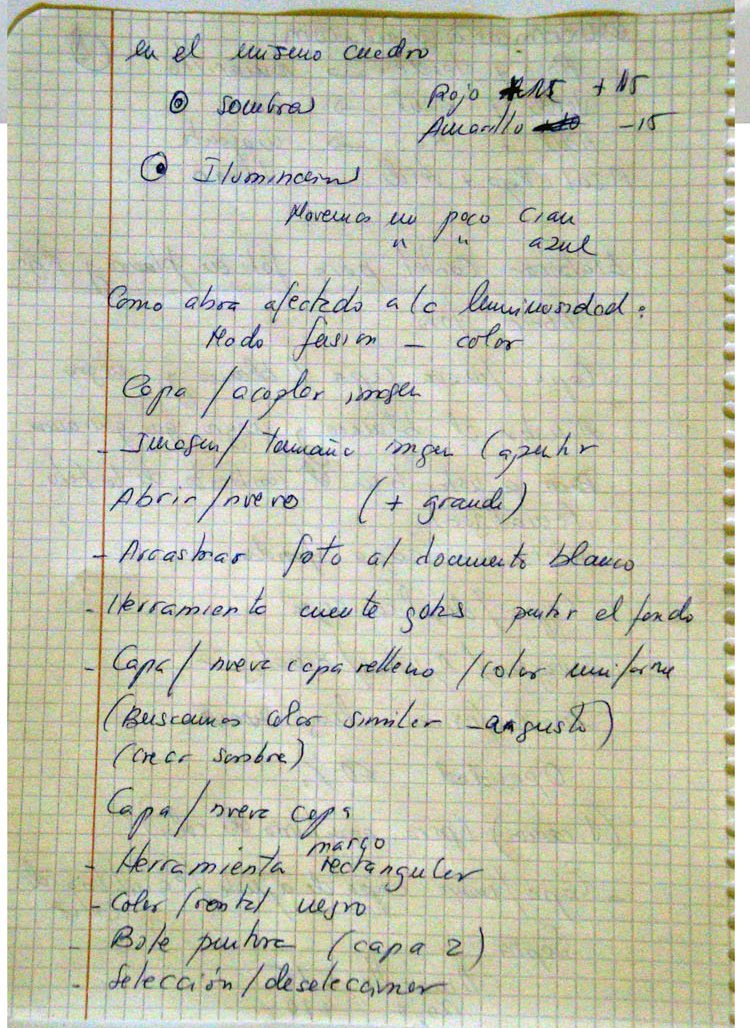 en el mismo cuadro
Sombras Rojo +15
Amarillo -15
Iluminacion
Movemos un poco cian
" " azul
Como abra afectado a la luminosidad:
Modo fusion - color
Capa / acoplar imagen
- Imagen / tamaño imgen (apuntar
Abrir / nuevo (+ grande)
- Arrastrar foto al documento blanco
- Herramienta cuente gotas pintar el fondo
- Capa / nueva capa relleno / color uniforme
(Buscamos color similar - angusto)
(crear sombra)
Capa / nueva capa
marco
- Herramienta rectangular
- Color frontal negro
- Bote pintura (capa 2)
- Selección / deseleccionar